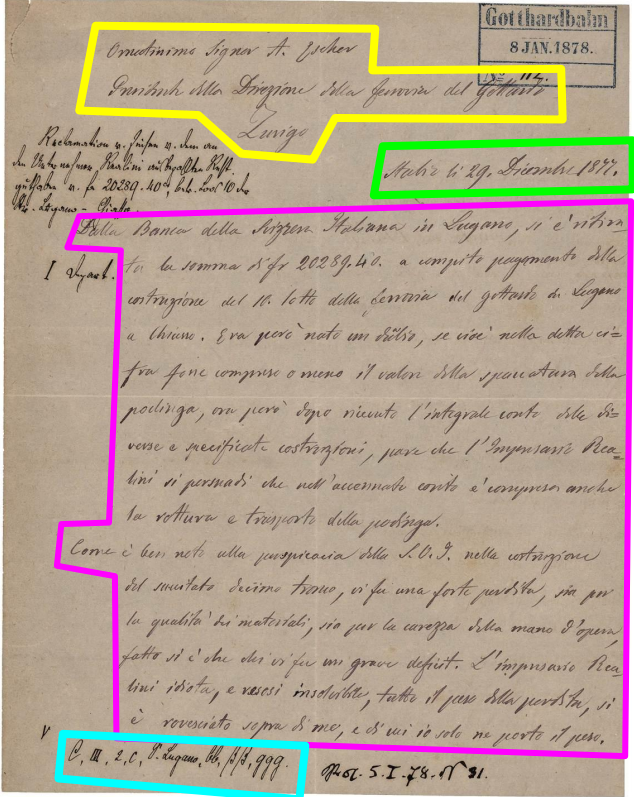 Gotthardbahn
8 JAN. 1878.
No 112.
Ornatissimo Signor A. Escher
Presidente della Direzione della ferrovia del Gottardo
Zurigo
Reclamation v. Zinsen v. dem an
den Unternehmer Realini ausbezahlten Rest-
guthaben v. fr 20289.40 cts, betr. Loos 10 der
Lugano - Chiasso.
Stabio li 29. Dicembre 1877.
Dalla Banca della Svizzera Italiana in Lugano, si è ritira-
I Depart.
ta la somma di fr 20289.40. a compito pagamento della
costruzione del 10. lotto della ferrovia del gottardo da Lugano
a Chiasso. Era però nato un dubio, se cioè nella detta ci=
fra fosse compreso o meno il valore della spaccatura della
podinga, ora però dopo ricevuto l'integrale conto delle di=
verse e specificate costruzioni, pare che l'Impresario Rea=
lini si persuadi che nell'accennato conto è compresa anche
la rottura e trasporto della podinga.
Come è ben noto alla perspicacia della S.V.I. nella costruzione
del sucitato decimo tronco, vi fu una forte perdita, sia per
la qualità dei materiali, sia per la carezza della mano d'opera,
fatto si è che vi fu un grave deficit. L'impresario Rea=
lini idiota, e resosi insolvibile, tutto il peso della perdita, si
è rovesciato sopra di me, e di cui io solo ne porto il peso.
V
C, III, 2, c, P. Lugano, bb, β/β, ggg.
Prot. 5. I. 78. No 31.